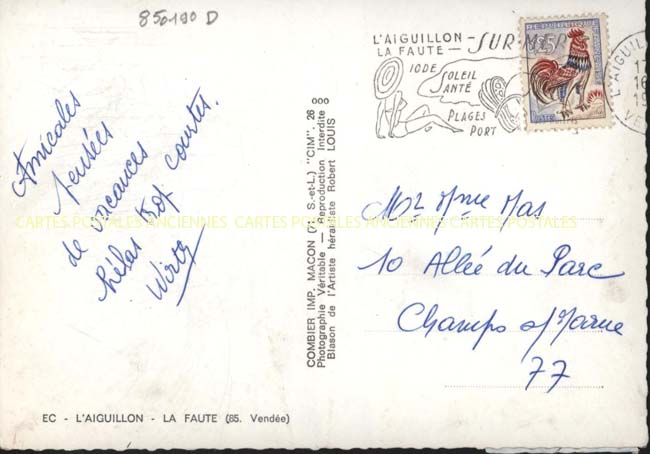 850190 D
Amicales
pensées
de vacances
hélas trop courtes.
Wirtz
EC - L'AIGUILLON - LA FAUTE (85. Vendée)
COMBIER IMP. MACON (71. S.-et-L.) "CIM". 26 000
Photographie Véritable — Reproduction Interdite
Blason de l'Artiste héraldiste Robert LOUIS
L'AIGUILLON - SUR-MER
LA FAUTE -
IODE
SOLEIL
SANTÉ
PLAGES
PORT
L'AIGUIL
VE
Mr Mme Mas
10 Allée du Parc
Champs s/Marne
77
CARTES POSTALES ANCIENNES CARTES POSTALES ANCIENNES CARTES POSTALES